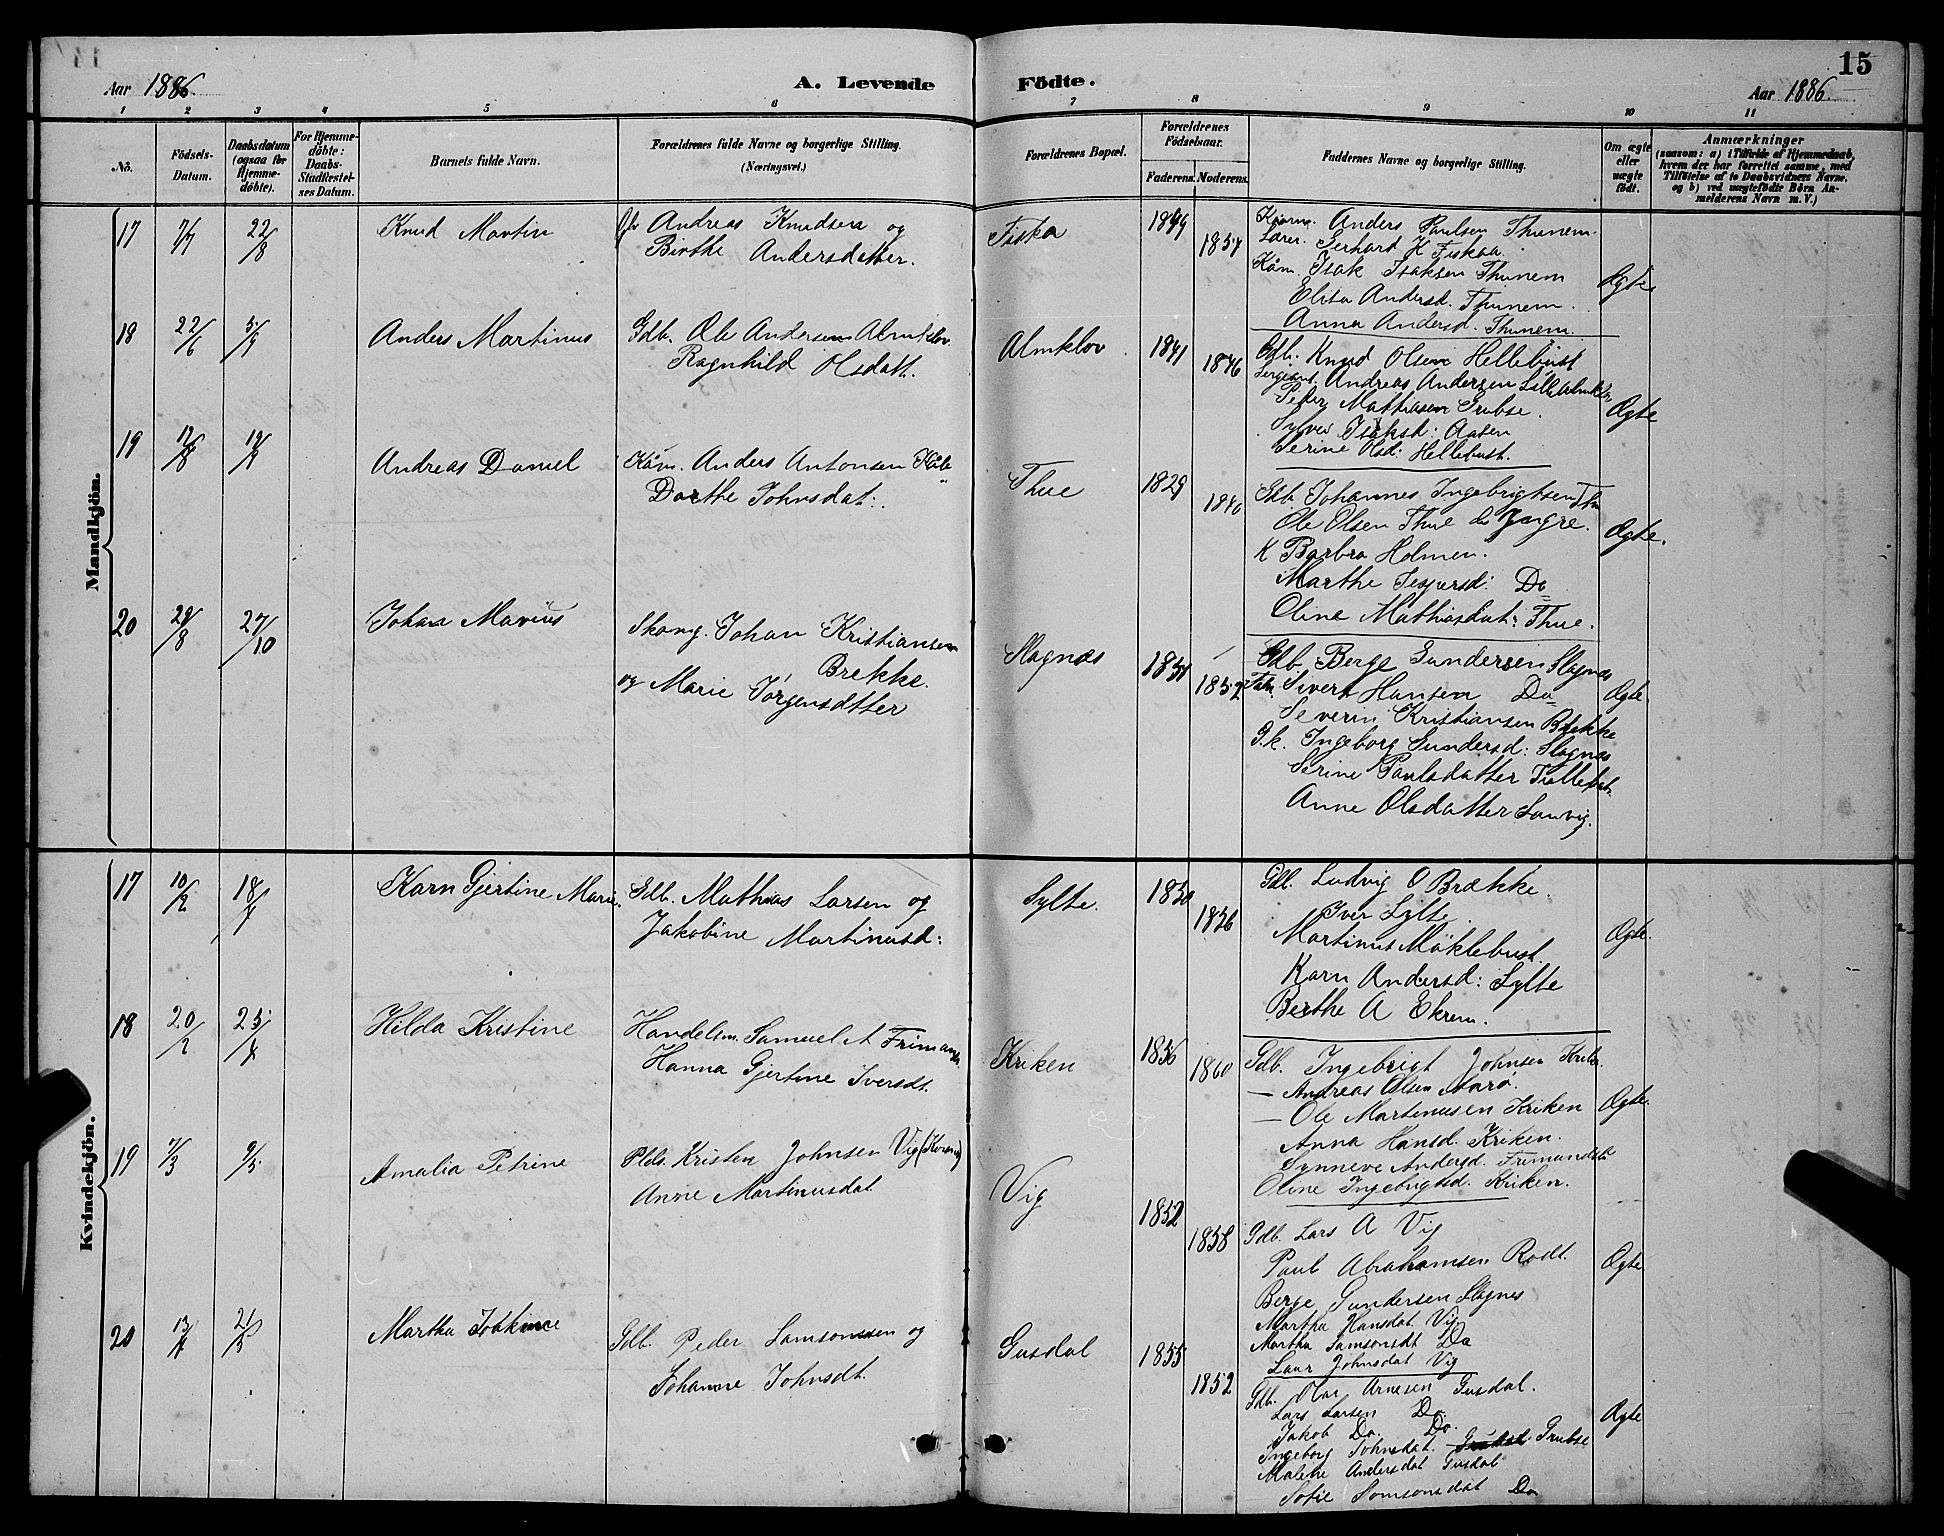 15
Aar 1886.
A. Levende Födte.
Aar 1886.
1 2 3 4 5 6 7 8 9 10 11
No.
Födsels-Datum.
Daabsdatum (ogsaa for Hjemme-döbte).
For Hjemme-döbte: Daabs-Stadfæstel-ses Datum.
Barnets fulde Navn.
Forældrenes fulde Navne og borgerlige Stilling. (Næringsvei.)
Forældrenes Bopæl.
Forældrenes Födselsaar.
Faderens. Moderens.
Faddernes Navne og borgerlige Stilling.
Om ægte eller uægte födt.
Anmærkninger
(saasom: a) i Tilfælde af Hjemmedaab,
hvem der har forrettet samme, med
Tilföielse af to Daabsvidners Navne.
og b) ved uægtefödte Börn An-
melderens Navn m. V.)
Mandkjön.
17 7/7 22/8 Knud Martin
Andreas Knudsen og
Birthe Andersdatter.
Fiska 1857
Anders Paulsen Thunem.
Lærer. Gerhard K Fiskaa.
Isak Isaksen Thunem
Elisa Andersd. Thunem.
Anna Andersd. Thunem.
Ægte
18 22/6 5/9 Anders Martinus
Gdb. Ole Andersen Almklov.
Ragnhild Olsdatt.
Almklov. 1841 1846
Gdb. Knud Olsen Hellebust
Sergeant. Andreas Andersen Lille Almklov
Peder Mathiasen Grubse.
Sylvei Isaksd: Aasen
Serine Olsd: Hellebust.
Ægte
19 Andreas Daniel
Anders Antonsen
Dorthe Johnsdat:
Thue 1829 1840
Gdb. Johannes Ingebrigtsen Thue
Ole Olsen Thue d. Yngre.
K Barbra Holmen.
Marthe Jespersd: Do
Oline Mathiasdat: Thue.
Ægte.
20 29/8 27/10 Johan Marius
Skomg. Johan Kristiansen
Brekke.
og Marie Jørgensdtter
Slagnæs 1852
Gdb. Berge Gundersen Slagnæs
Sivert Hansen Do
Severin Kristiansen Brekke
P.k. Ingeborg Gundersd: Slagnæs
Serine Paulsdatter
Anne Olsdatter Sanvig.
Ægte.
Kvindekjön.
17 10/2 18/4 Karn Gjertine Marie.
Gdb. Mathias Larsen og
Jakobine Martinusd:
Sylte. 1850 1856
Gdb. Ludvig O Brække.
Iver Sylte.
Martinus Møklebust.
Karn Andersd: Sylte
Berthe A Ekrem.
Ægte.
18 20/2 25/4 Hilda Kristine
Handelsm. Samuel A
Hanna Gjertine Iversdt.
Kriken 1856 1860
Gdb. Ingebrigt Johnsen
— Andreas Olsen Aarø.
— Ole Martinusen Kriken
Anna Hansd. Kriken.
Synneve Andersd.
Oline Ingebrigtsd. Kriken.
Ægte.
19 7/3 9/5 Amalia Petrine
Plds. Kristen Johnsen Vig
Anne Martinusdat
Vig 1852 1858
Gdb. Lars A Vig
Paul Abrahamsen Rødt.
Berge Gundersen Slagnes
Martha Hansdat Vig
Martha Samsonsdt Do
Laur Johnsdat Vig
Ægte
20 21/5 Martha
Gdb. Peder Samsonsen og
Johanne Johnsdt.
Gusdal 1855 1852
Gdb. Arnesen Gusdal.
Lars Larsen Do.
Jakob Do. Do.
Ingeborg Johnsdat. Grubse
Malene Andersdat Gusdal
Sofie Samsonsdat Do
Ægte